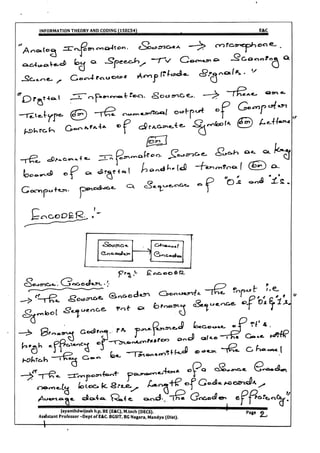 INFORMATION THEORY AND CODING (15EC54) E&C
"Analog Information Sources → microphone
actuated by a Speech, TV Camera Scanning a
Scene, Continuous Amplitude Signals."
"Digital Information Source → These are
Teletype (or) The numerical output of Computer
which Consists of discrete Symbols (or) Letters
(or)
The discrete Information Source Such as a key
board of a digital hand held terminal (or) a
Computer. produce a Sequence of "0's and 1's.
ENCODER :-
Source Encoder
Channel Encoder
Fig: Encoder
Source Encoder:
→ "The Source Encoder Converts The input i.e
Symbol Sequence int a binary Sequence of 0's & 1's.
→ Binary Coding is preferred because of It's
high efficiency of Transmission and also The Ease with
which They Can be Transmitted over The Channel
→ "The Important parameters of a Source Encoder
namely block Size, Length of Code words,
Average data Rate and The Encoder efficiency."
Jayanthdwijesh h.p. BE (E&C), M.tech (DECS). Page 2
Assistant Professor –Dept of E&C. BGSIT, BG Nagara, Mandya (Dist).